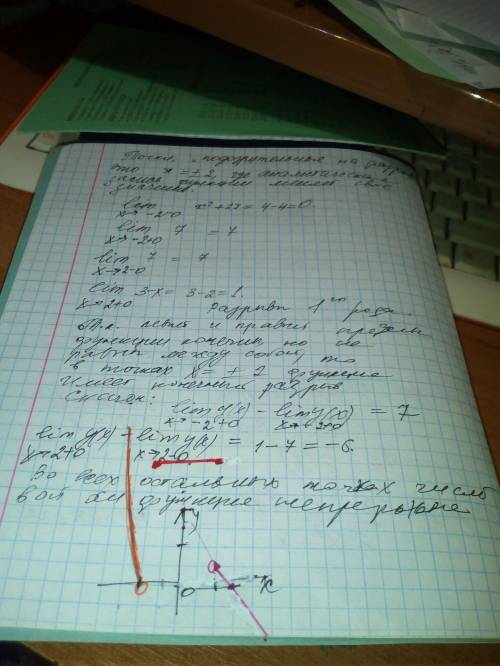 Точки, подозрительные на разрыв
это x = ± 2, где аналитическая
запись функции меняет своё
значение.
lim x² + 2x = 4 - 4 = 0.
x→-2-0
lim 7 = 7
x→-2+0
lim 7 = 7
x→2-0
lim 3-x = 3-2 = 1.
x→2+0
разрыв 1 го рода
Т.к. левый и правый пределы
функции конечны но не
равны между собой, то
в точках x = ± 2 функция
имеет конечный разрыв
Скачек:
lim y(x) - lim y(x) = 7
x→-2+0 x→-2-0
lim y(x) - lim y(x) = 1 - 7 = -6.
x→2+0 x→2-0
Во всех остальных точках число
вой оси функция непрерывна
y
0 x